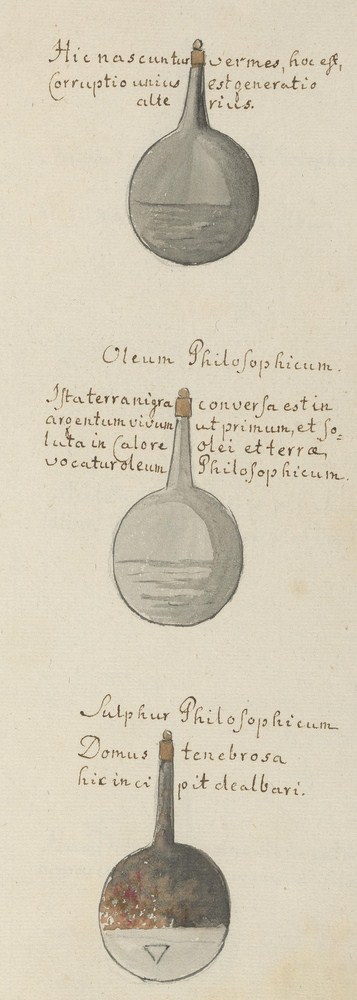 Hic nascuntur vermes, hoc est,
Corruptio unius est generatio
alte rius.
Oleum Philosophicum.
Ista terra nigra conversa est in
argentum vivum ut primum, et so-
luta in Calore olei et terræ,
vocatur oleum Philosophicum.
Sulphur Philosophicum
Domus tenebrosa
hic inci pit dealbari.